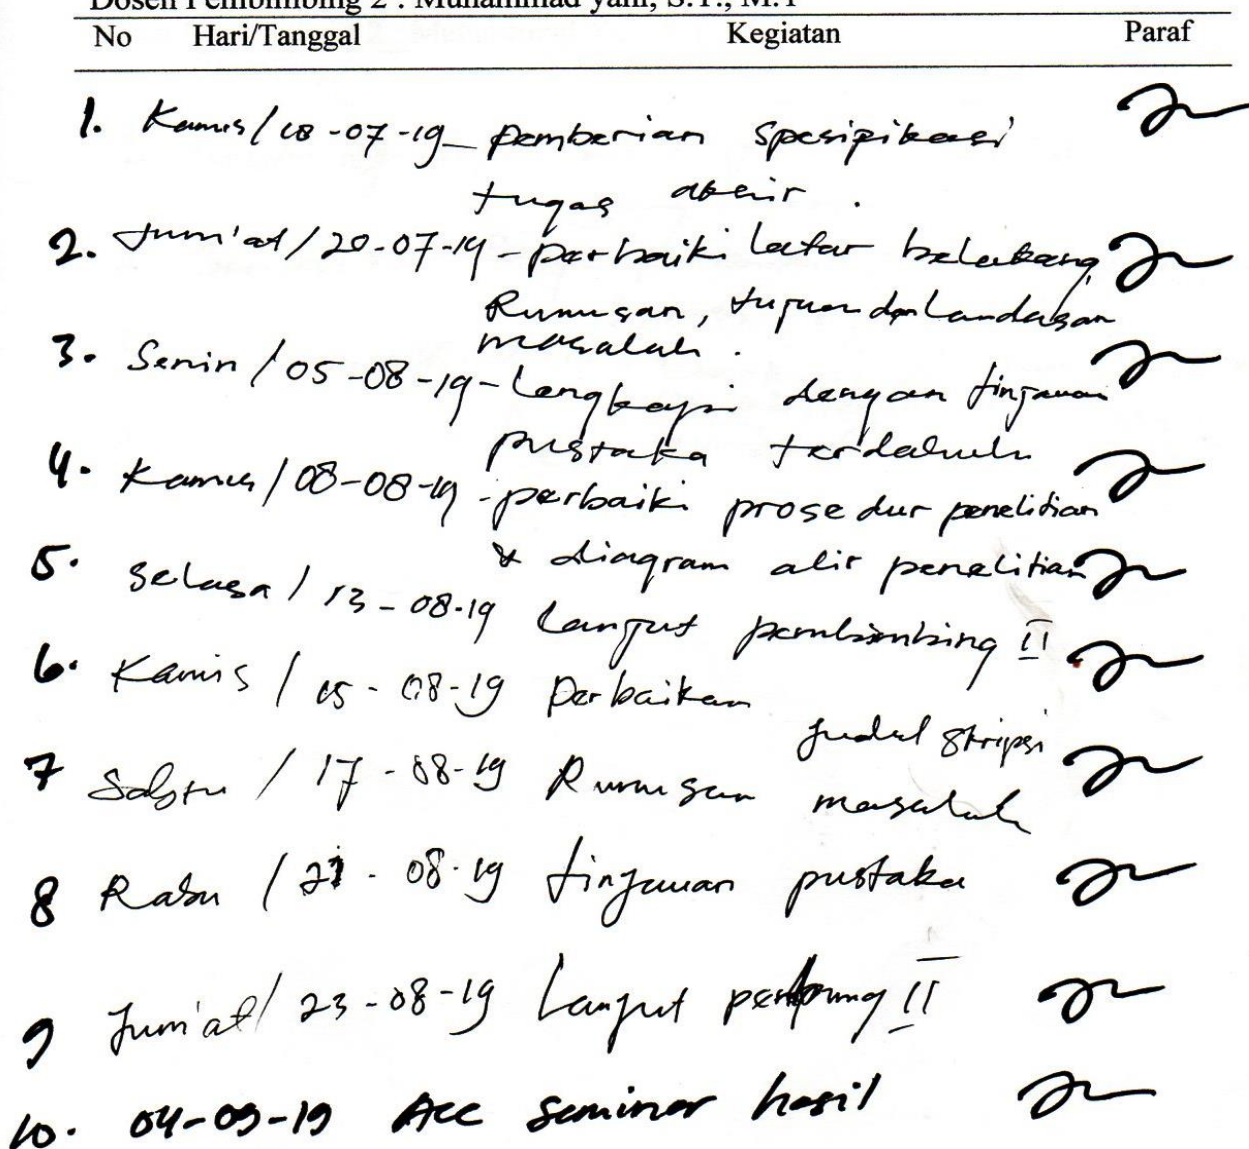 Dosen Pembimbing 2 : Muhammad yani, S.T., M.T
No Hari/Tanggal Kegiatan Paraf
1. Kamis / 18-07-19 - pemberian spesipikasi
tugas akhir.
2. Jum'at / 20-07-19 - perbaiki latar belakang
Rumusan, tujuan dan Landasan
masalah.
3. Senin / 05-08-19 - Lengkapi dengan tinjauan
pustaka terdahulu
4. Kamis / 08-08-19 - perbaiki prosedur penelitian
& diagram alir penelitian
5. Selasa / 13-08-19 Lanjut pembimbing II
6. Kamis / 15-08-19 Perbaikan
Judul Skripsi
7 Sabtu / 17-08-19 Rumusan masalah
8 Rabu / 21-08-19 tinjauan pustaka
9 Jum'at / 23-08-19 Lanjut II
10. 04-09-19 Acc seminar hasil